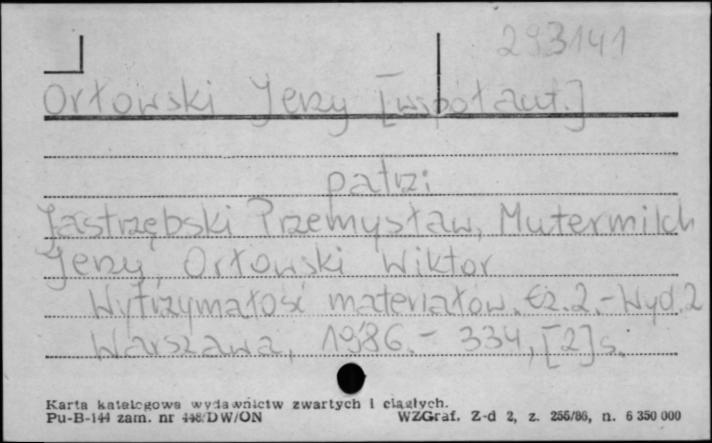 293141
Orłowski Jerzy [współaut.]
patrz:
Jastrzębski Przemysław, Mutermilch
Jerzy, Orłowski Wiktor
Wytrzymałość materiałów. Cz. 2. - Wyd. 2
Warszawa, 1986. - 334, [2] s.
Karta katalogowa wydawnictw zwartych i ciągłych.
Pu-B-144 zam. nr 448/DW/ON WZGraf. Z-d 2, z. 255/86, n. 6 350 000